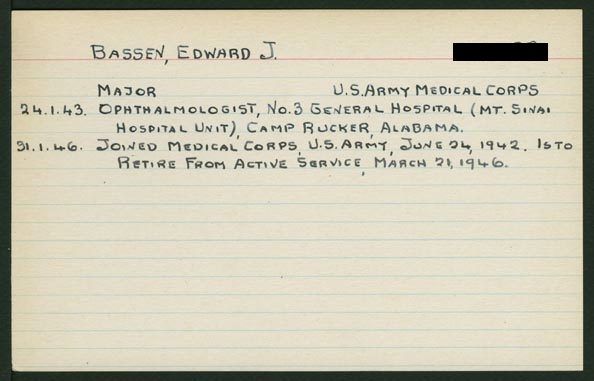 BASSEN, EDWARD J.
MAJOR U.S. ARMY MEDICAL CORPS
24.1.43. OPHTHALMOLOGIST, NO.3 GENERAL HOSPITAL (MT. SINAI
HOSPITAL UNIT), CAMP RUCKER, ALABAMA.
31.1.46. JOINED MEDICAL CORPS, U.S. ARMY, JUNE 24, 1942. IS TO
RETIRE FROM ACTIVE SERVICE, MARCH 21, 1946.